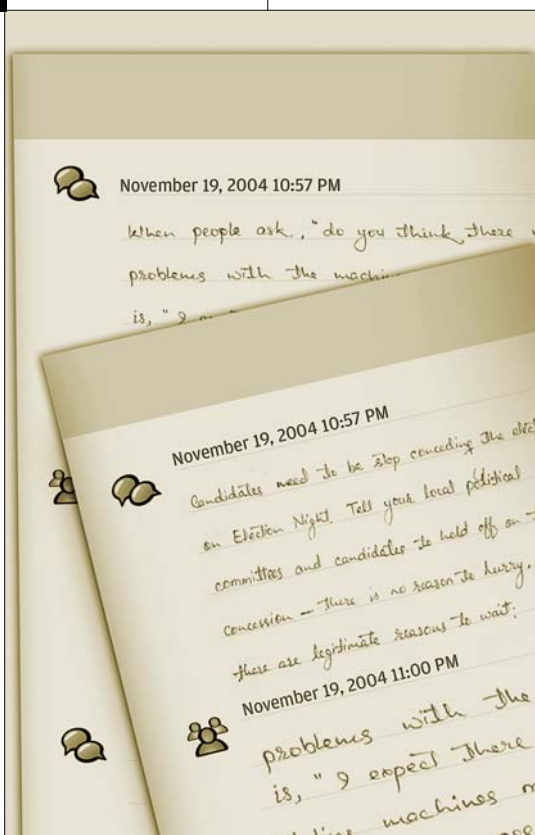 November 19, 2004 10:57 PM
When people ask, "do you think there
problems with the
is, "I
November 19, 2004 10:57 PM
Candidates need to be stop conceding the
on Election Night. Tell your local political
committees and candidates to hold off on
concession — there is no reason to hurry.
there are legitimate reasons to wait:
November 19, 2004 11:00 PM
problems with the
is, "I expect there
machines